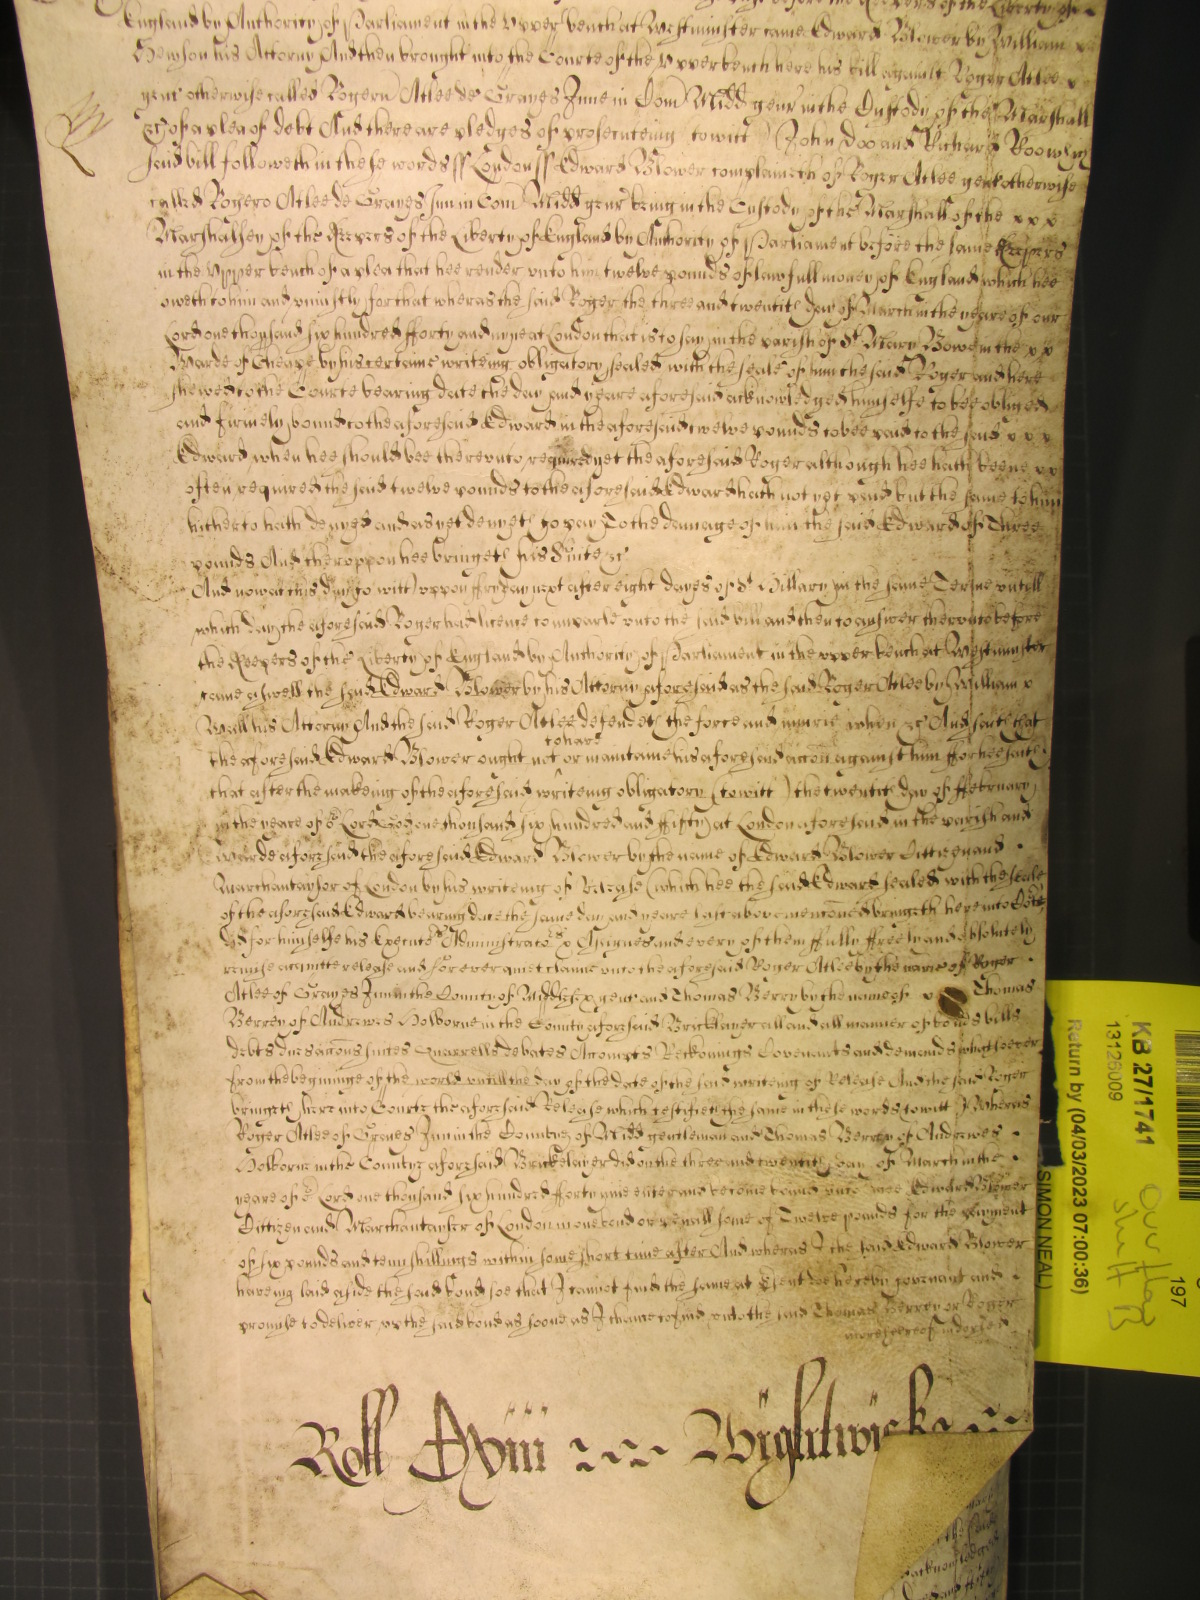 before the Keepers of the Liberty of
England by Authority of Parliament in the Upper bench at Westminster came Edward Blower by William
Hewson his Attorny And then brought into the Courte of the Upper bench here his bill against Roger Atlee x
gent otherwise called Rogero Atlee de Grayes Inne in Com Midd gener in the Custody of the Marshall
&c of a plea of debt And there are pledges of prosecuteing towitt John Doo and Richard Roo which
said bill followeth in these words ss London ss Edward Blower complaineth of Roger Atlee gent otherwise
called Rogero Atlee de Grayes Inn in Com Midd gener being in the Custody of the Marshall of the x x x
Marshalsey of the Keepers of the Liberty of England by Authority of Parliament before the same Keepers
in the Upper bench of a plea that hee render unto him twelve pounds of lawfull money of England which hee
oweth to him and uniustly for that wheras the said Roger the three and twentith day of March in the yeare of our
Lord one thousand six hundred fforty and nyne at London that is to say in the parish of St Mary Bowe in the x x
Warde of Cheape by his certaine writeing obligatory sealed with the seale of him the said Roger and here
shewed to the Courte beareing date the day and yeare aforesaid acknowledged himselfe to bee obliged
and firmely bound to the aforesaid Edward in the aforesaid twelve pounds to bee paid to the said x x x
Edward when hee should bee thereunto required yet the aforesaid Roger although hee hath beene xx
often required the said twelve pounds to the aforesaid Edward hath not yet paid but the same to him
hitherto hath denyed and as yet denyeth to pay To the damage of him the said Edward of Three
pounds And theruppon hee bringeth his Suite &c
And now at this day to witt uppon ffryday next after eight dayes of St Hillary in the same Terme untill
which day the aforesaid Roger had licence to imparle unto the said bill and then to answer therunto before
the Keepers of the Liberty of England by Authority of Parliament in the upper bench at Westminster
came aswell the said Edward Blower by his Attorny aforesaid as the said Roger Atlee by William x
his Attorny And the said Roger Atlee defendeth the force and iniurie when &c And saith that
to have
the aforesaid Edward Blower ought not or maintaine his aforesaid accon against him ffor hee saith
that after the makeing of the aforesaid writeing obligatory (towitt) the twentith day of ffebruary
in the yeare of or Lord God one thousand six hundred and ffifty at London aforesaid in the parish and
warde aforesaid the aforesaid Edward Blower by the name of Edward Blower Cittizen and
Marchantaylor of London by his writeing of Release (which hee the said Edward sealed with the seale
of the aforesaid Edward beareing date the same day and yeare last above menconed bringeth here into Courte
did for himselfe his Executrs Administratrs & Assignes and every of them ffully ffreely and absolutely
remise acquitte release and for ever quiet claime unto the aforesaid Roger Atlee by the name of Roger
Atlee of Grayes Inn in the County of Middlesex gent and Thomas Berry by the name of x Thomas
Berrey of Andrewes Holborne in the County aforesaid Bricklayer all and all manner of bonds bills
debts dues accons suites Quarrells debates Accompts Reckonings Covenants and demands whatsoever
from the beginninge of the world untill the day of the date of the said writeing of Release And the said Roger
bringeth here into Courte the aforesaid Release which testifieth the same in these words towitt Wheras
Roger Atlee of Grayes Inn in the County of Midd gentleman and Thomas Berrey of Andrewes
Holborne in the County aforesaid Brickelayer did on the three and twentith day of March in the
yeare of or Lord one thousand six hundred fforty nine enter and become bound unto mee Edward Blower
Cittizen and Marchantaylor of London in one bond or penall some of Twelve pounds for the payment
of six pounds and tenn shillings within some short time after And wheras I the said Edward Blower
haveing laid aside the said bond soe that I cannot find the same at present doe hereby covenant and
promise to deliver upp the said bond as soone as I chance to find unto the said Thomas Berrey or Roger
more hereof indorsed
Roll Wightwick
KB 27/1741
13126009
Return by (04/03/2023 07:00:36)
SIMON NEAL)
197